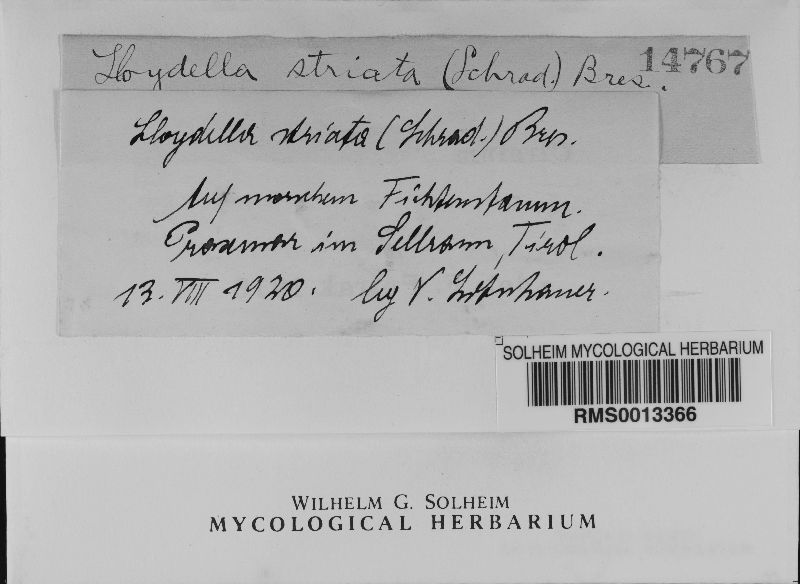 Lloydella striata (Schrad.) Bres. 14767
Lloydella striata (Schrad.) Bres.
Auf morschem Fichtenstamm.
Praxmar im Sellrain, Tirol.
13. VIII 1920. leg V. Litschauer.
SOLHEIM MYCOLOGICAL HERBARIUM
RMS0013366
WILHELM G. SOLHEIM
MYCOLOGICAL HERBARIUM